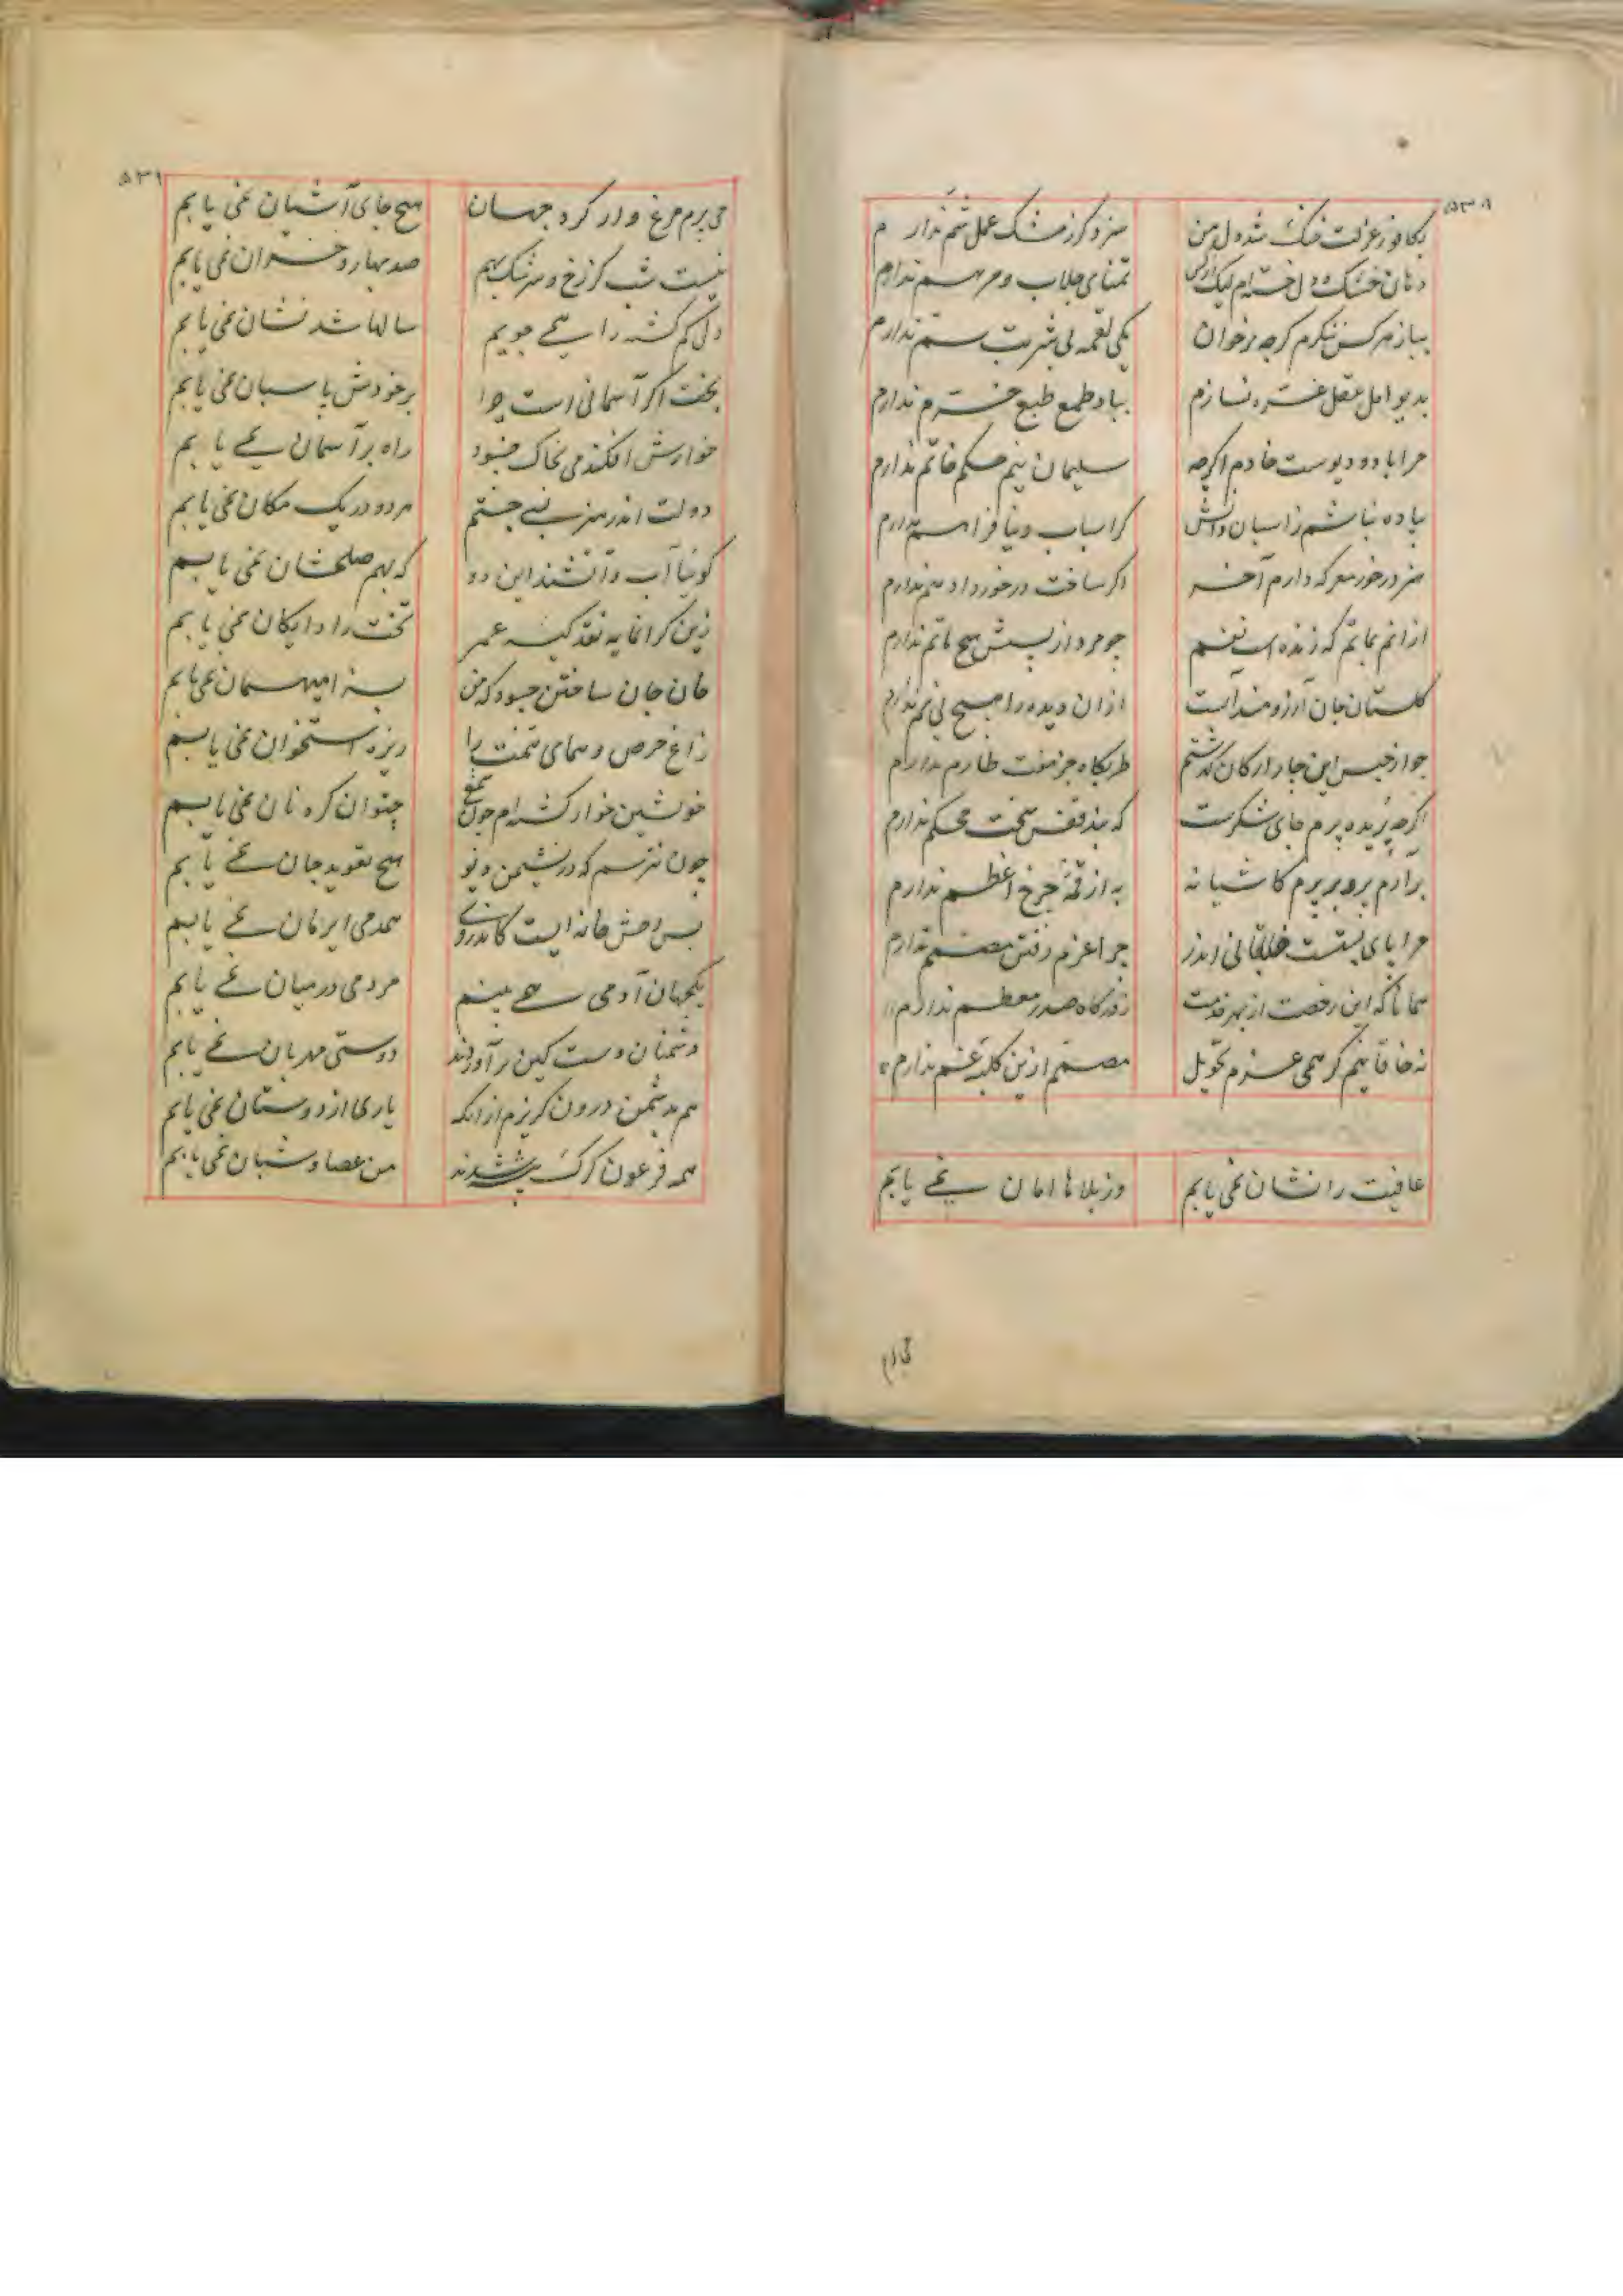 ۵۳۸
بکافور عزلت خنک شد دل من سزد گر ز مشک عمل شم ندارم
دهان خشک و دل خسته‌ام لیک از کس تمنای جلاب و مرهم ندارم
بباز هر کس ننگرم گرچه بر خوان یکی لقمه بی شربت سم ندارم
بدیو امل عقل غره نسازم بباد طمع طبع خرم ندارم
مرا باد و دیوست خادم اگرچه سلیمان نیم حکم خاتم ندارم
پیاده نباشم ز اسبان دانش گر اسباب دنیا فراهم ندارم
هنر درخور معرکه دارم آخر اگر ساخت درخورد ادهم ندارم
از آنم بماتم که زنده است نفسم چو مرد از پسش هیچ ماتم ندارم
گلستان جان آرزومند آبست از آن دیده را هیچ بی نم ندارم
چو از حبس این چار ارکان گذشتم طربگاه جز هفت طارم ندارم
اگرچه بریده پرم جای شکرست که بند قفس سخت محکم ندارم
برآرم پر و برپرم کاشیانه به از قمه چرخ اعظم ندارم
مرا پای بستست خاقانی ایدر چرا عزم رفتن مصمم ندارم
همانا که این رخصت از بهر خدمت ز درگاه صدر معظم ندارم
نه خاقانیم گر همی عزم تحویل مصمم ازین کلبه غم ندارم
عافیت را نشان نمی یابم وز بلاها امان نمی یابم
۵۳۹
می پرم مرغ وار گرد جهان هیچ جای آشیان نمی یابم
نیست شب کز رخ و سرشک بهم صد بهار و خزان نمی یابم
دل گم گشته را همی جویم سالها شد نشان نمی یابم
بخت اگر آسمانی است چرا بر خودش پاسبان نمی یابم
خوارش افکندمی بخاک چسود راه بر آسمان نمی یابم
دولت اندر هنر بسی جستم هر دو در یک مکان نمی یابم
گوئیا آب و آتشند این دو که بهم صلحشان نمی یابم
زین گرانمایه نقد کیسه عمر بخت را دایگان نمی یابم
خان جان ساختن چسود که من بسزا میهمان نمی یابم
زاغ حرص و همای همت را ریزه استخوان نمی یابم
خویشتن خوار گشته‌ام چون شمع چتوان کرد نان نمی یابم
چون نترسم که در نشیمن دیو هیچ تعویذ جان نمی یابم
بس وحش خانه ایست کاندروی همدمی ایرمان نمی یابم
یکجهان آدمی همی بینم مردمی در میان نمی یابم
دشمنان دست کین برآوردند دوستی مهربان نمی یابم
هم بدشمن درون گریزم از آنکه یاری از دوستان نمی یابم
همه فرعون گرگ پیشه شدند من عصا و شبان نمی یابم